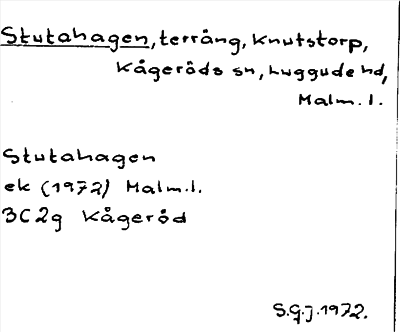 Stutahagen, terräng, Knutstorp,
Kågeröds sn, Luggude hd,
Malm. l.
Stutahagen
ek (1972) Malm.l.
3C2g Kågeröd
S.G.J.1972.